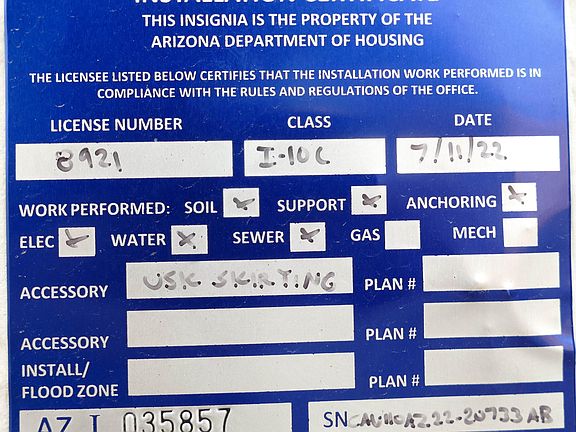 INSTALLATION CERTIFICATE
THIS INSIGNIA IS THE PROPERTY OF THE
ARIZONA DEPARTMENT OF HOUSING
THE LICENSEE LISTED BELOW CERTIFIES THAT THE INSTALLATION WORK PERFORMED IS IN
COMPLIANCE WITH THE RULES AND REGULATIONS OF THE OFFICE.
LICENSE NUMBER CLASS DATE
8921 I-10C 7/11/22
WORK PERFORMED: SOIL SUPPORT ANCHORING
ELEC WATER SEWER GAS MECH
ACCESSORY USK SKIRTING PLAN #
ACCESSORY PLAN #
INSTALL/
FLOOD ZONE PLAN #
AZ I 035857 SN